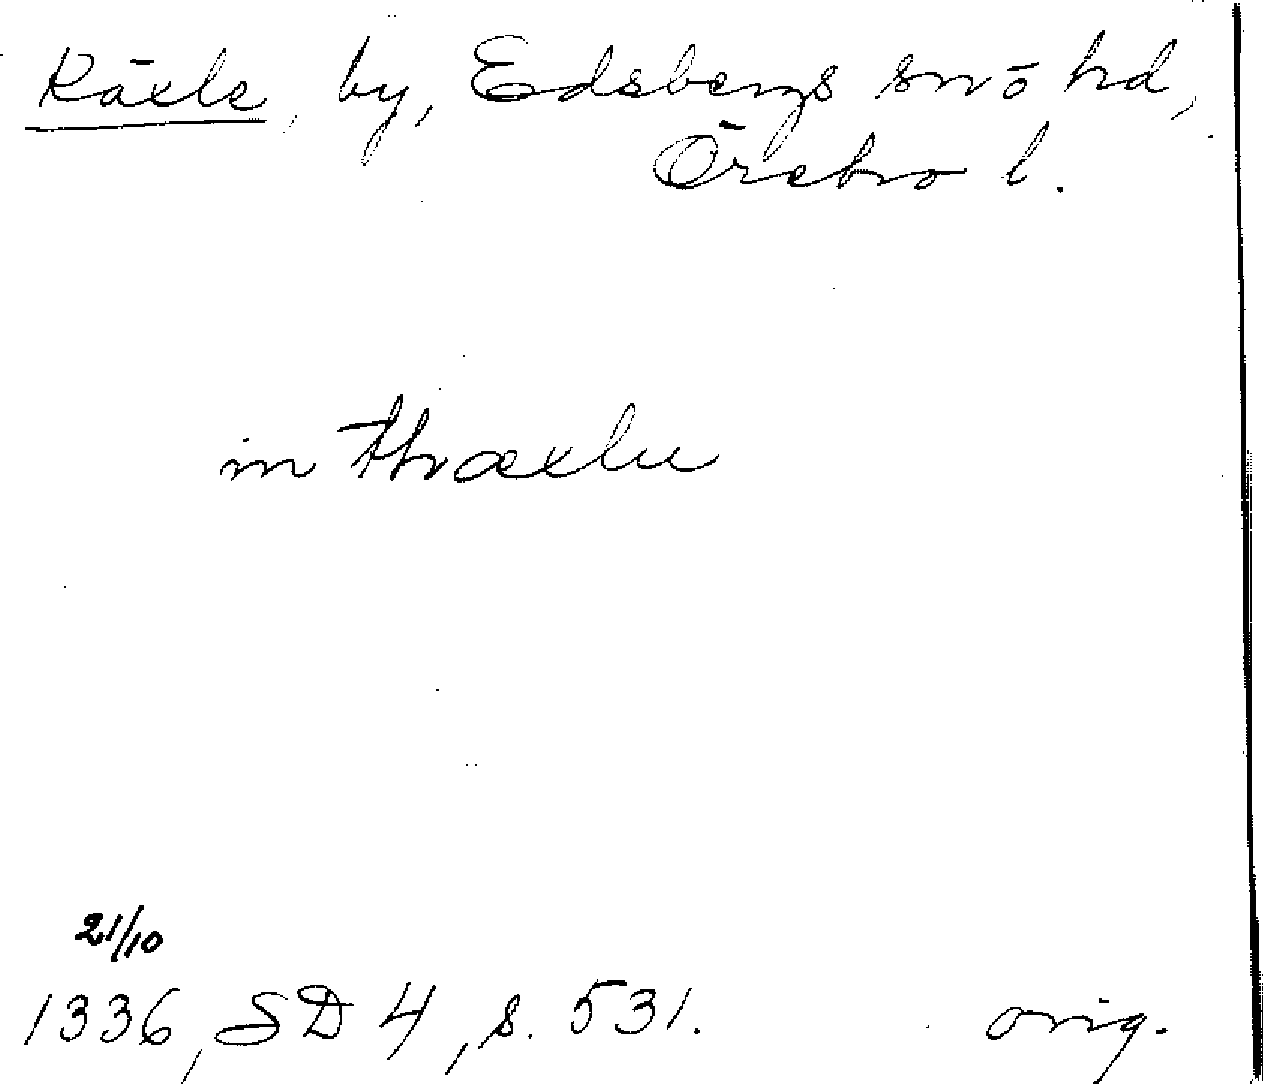 Räxle, by, Edsbergs sn o hd,
Örebro l.
in thræxlu
21/10
1336, SD 4, s. 531. orig.